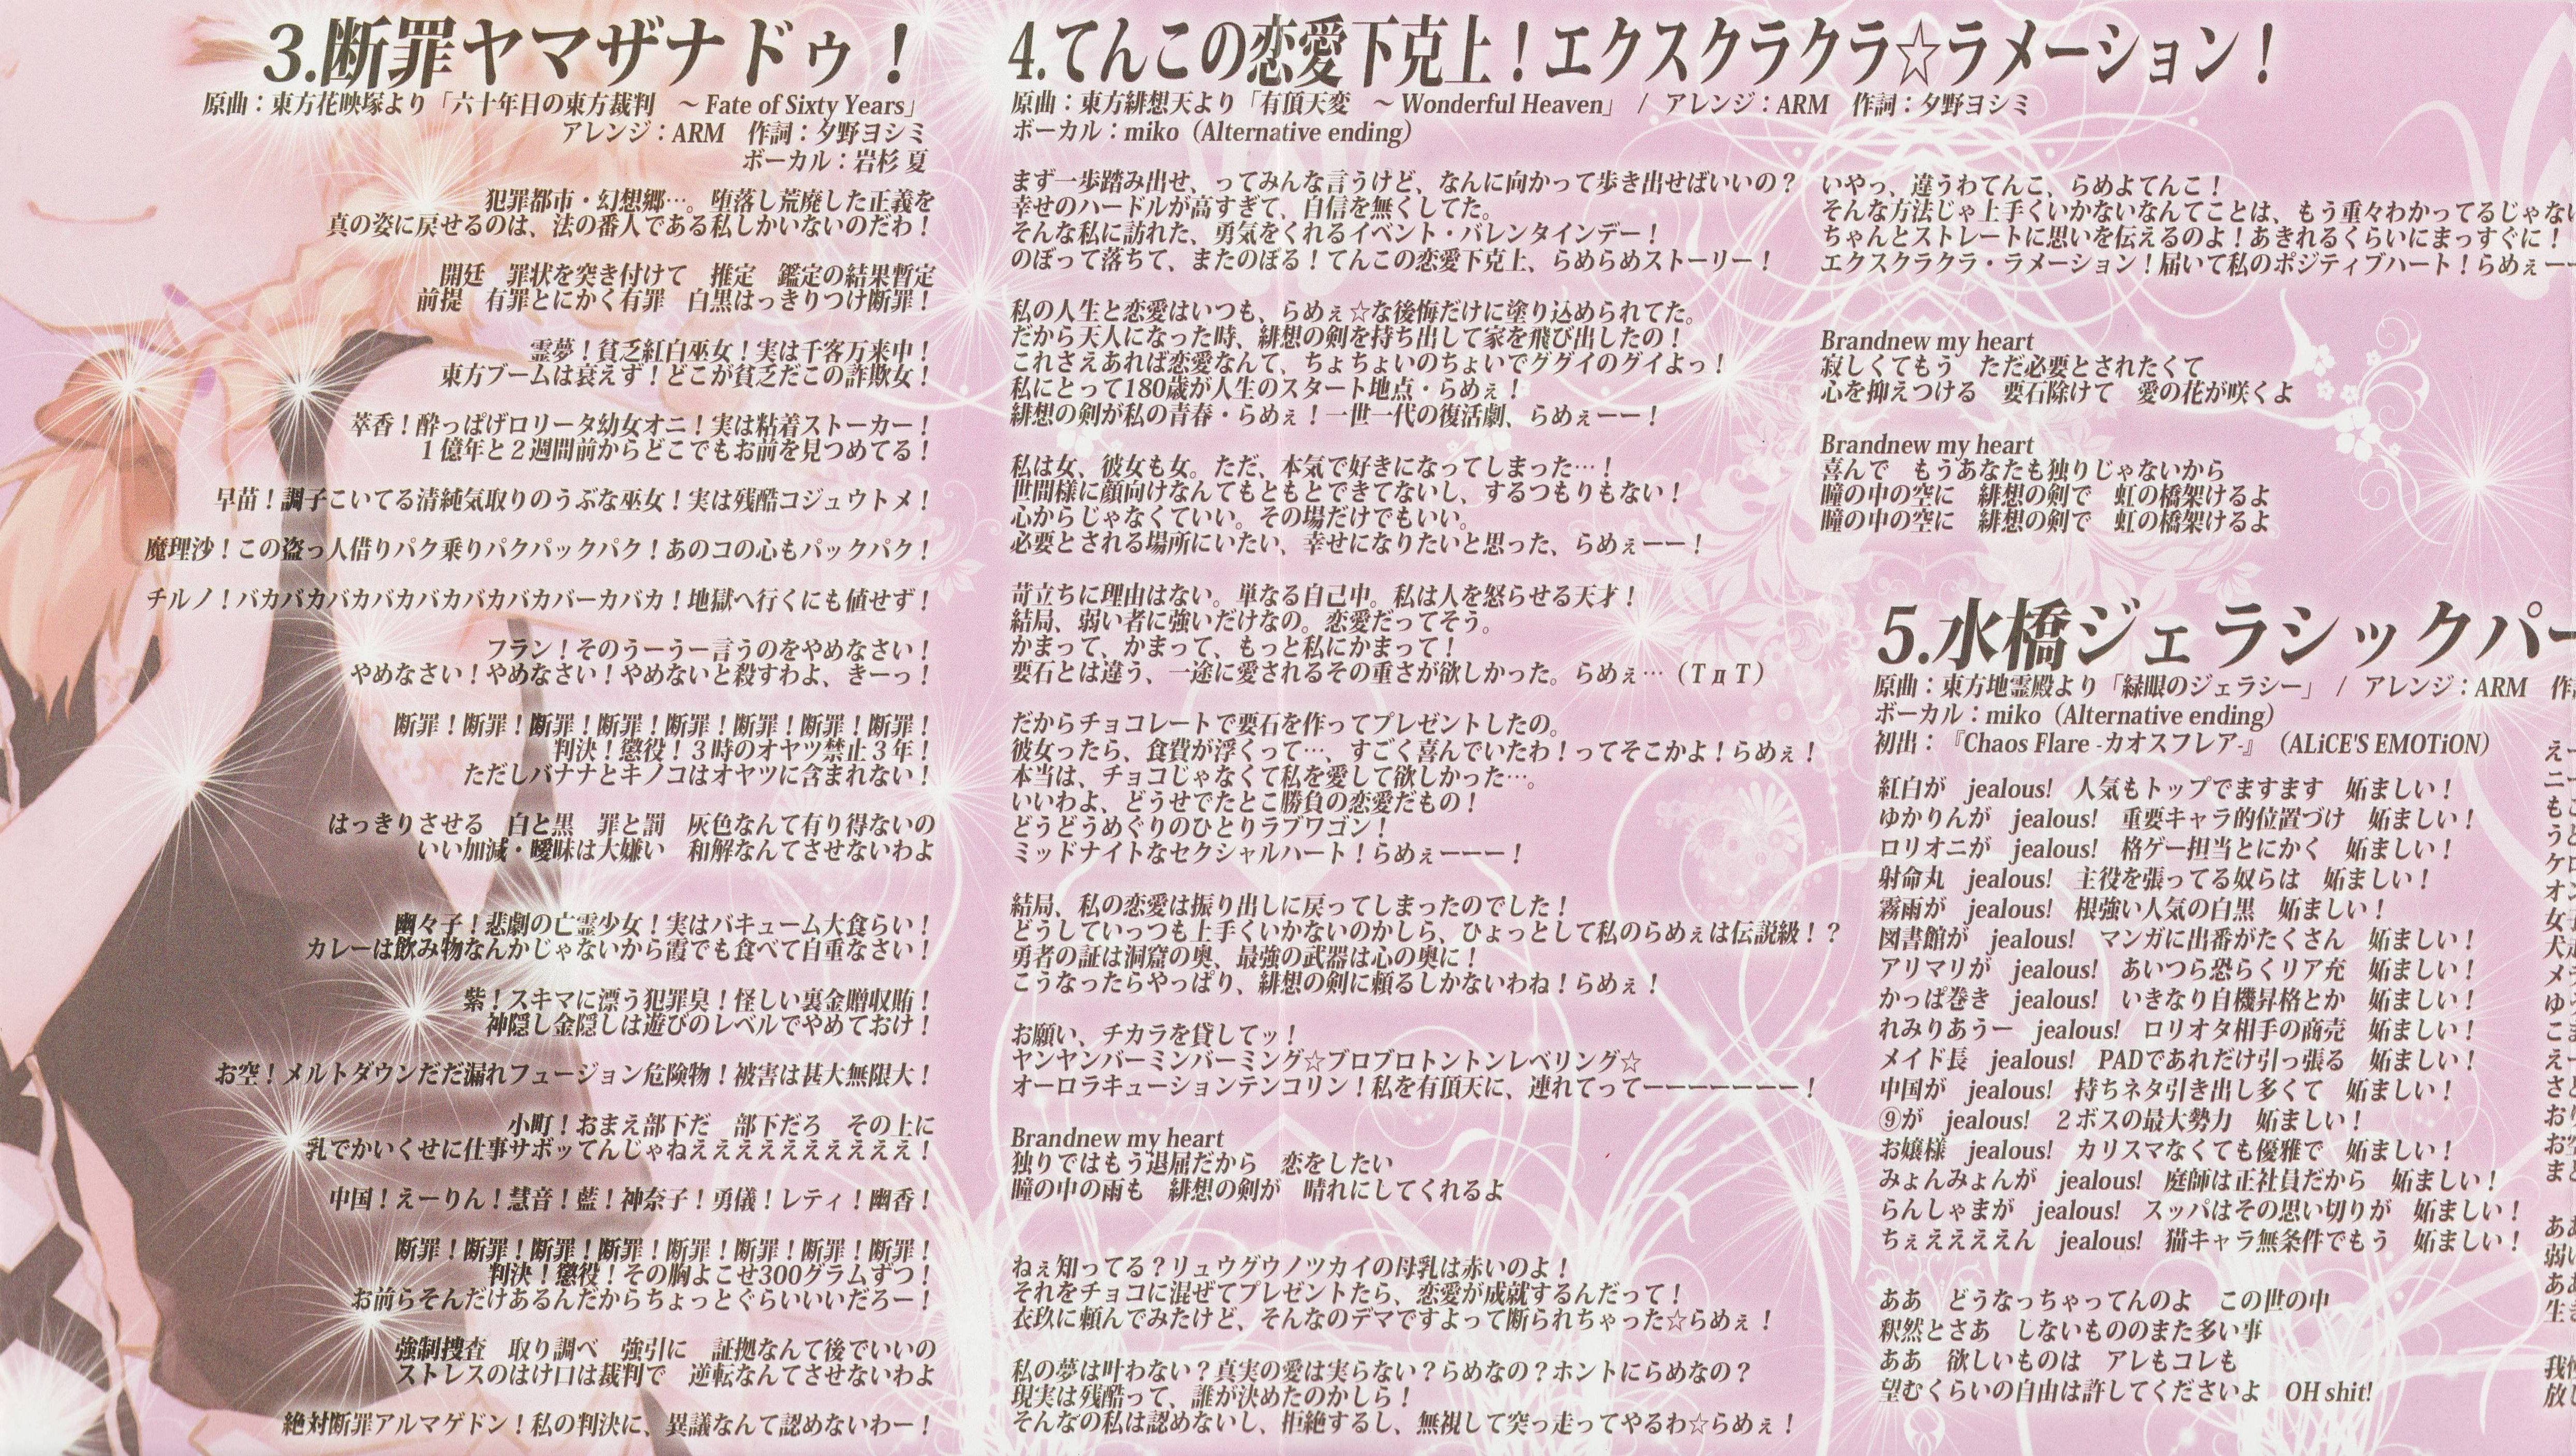 3.断罪ヤマザナドゥ！
原曲：東方花映塚より「六十年目の東方裁判　～ Fate of Sixty Years」
アレンジ：ARM　作詞：夕野ヨシミ
ボーカル：岩杉 夏
犯罪都市・幻想郷…。堕落し荒廃した正義を
真の姿に戻せるのは、法の番人である私しかいないのだわ！
開廷　罪状を突き付けて　推定　鑑定の結果暫定
前提　有罪とにかく有罪　白黒はっきりつけ断罪！
霊夢！貧乏紅白巫女！実は千客万来中！
東方ブームは衰えず！どこが貧乏だこの詐欺女！
萃香！酔っぱげロリータ幼女オニ！実は粘着ストーカー！
１億年と２週間前からどこでもお前を見つめてる！
早苗！調子こいてる清純気取りのうぶな巫女！実は残酷コジュウトメ！
魔理沙！この盗っ人借りパク乗りパクパックパク！あのコの心もパックパク！
チルノ！バカバカバカバカバカバカバカバーカバカ！地獄へ行くにも値せず！
フラン！そのうーうー言うのをやめなさい！
やめなさい！やめなさい！やめないと殺すわよ、きーっ！
断罪！断罪！断罪！断罪！断罪！断罪！断罪！断罪！
判決！懲役！３時のオヤツ禁止３年！
ただしバナナとキノコはオヤツに含まれない！
はっきりさせる　白と黒　罪と罰　灰色なんて有り得ないの
いい加減・曖昧は大嫌い　和解なんてさせないわよ
幽々子！悲劇の亡霊少女！実はバキューム大食らい！
カレーは飲み物なんかじゃないから霞でも食べて自重なさい！
紫！スキマに漂う犯罪臭！怪しい裏金贈収賄！
神隠し金隠しは遊びのレベルでやめておけ！
お空！メルトダウンだだ漏れフュージョン危険物！被害は甚大無限大！
小町！おまえ部下だ　部下だろ　その上に
乳でかいくせに仕事サボッてんじゃねえええええええええええ！
中国！えーりん！慧音！藍！神奈子！勇儀！レティ！幽香！
断罪！断罪！断罪！断罪！断罪！断罪！断罪！断罪！
判決！懲役！その胸よこせ300グラムずつ！
お前らそんだけあるんだからちょっとぐらいいいだろー！
強制捜査　取り調べ　強引に　証拠なんて後でいいの
ストレスのはけ口は裁判で　逆転なんてさせないわよ
絶対断罪アルマゲドン！私の判決に、異議なんて認めないわー！
4.てんこの恋愛下克上！エクスクラクラ☆ラメーション！
原曲：東方緋想天より「有頂天変　～ Wonderful Heaven」 / アレンジ：ARM　作詞：夕野ヨシミ
ボーカル：miko（Alternative ending）
まず一歩踏み出せ、ってみんな言うけど、なんに向かって歩き出せばいいの？
幸せのハードルが高すぎて、自信を無くしてた。
そんな私に訪れた、勇気をくれるイベント・バレンタインデー！
のぼって落ちて、またのぼる！てんこの恋愛下克上、らめらめストーリー！
私の人生と恋愛はいつも、らめぇ☆な後悔だけに塗り込められてた。
だから天人になった時、緋想の剣を持ち出して家を飛び出したの！
これさえあれば恋愛なんて、ちょちょいのちょいでググイのグイよっ！
私にとって180歳が人生のスタート地点・らめぇ！
緋想の剣が私の青春・らめぇ！一世一代の復活劇、らめぇーー！
私は女、彼女も女。ただ、本気で好きになってしまった…！
世間様に顔向けなんてもともとできてないし、するつもりもない！
心からじゃなくていい。その場だけでもいい。
必要とされる場所にいたい、幸せになりたいと思った、らめぇーー！
苛立ちに理由はない。単なる自己中。私は人を怒らせる天才！
結局、弱い者に強いだけなの。恋愛だってそう。
かまって、かまって、もっと私にかまって！
要石とは違う、一途に愛されるその重さが欲しかった。らめぇ…（ＴдＴ）
だからチョコレートで要石を作ってプレゼントしたの。
彼女ったら、食費が浮くって…、すごく喜んでいたわ！ってそこかよ！らめぇ！
本当は、チョコじゃなくて私を愛して欲しかった…。
いいわよ、どうせでたとこ勝負の恋愛だもの！
どうどうめぐりのひとりラブワゴン！
ミッドナイトなセクシャルハート！らめぇーーー！
結局、私の恋愛は振り出しに戻ってしまったのでした！
どうしていっつも上手くいかないのかしら、ひょっとして私のらめぇは伝説級！？
勇者の証は洞窟の奥、最強の武器は心の奥に！
こうなったらやっぱり、緋想の剣に頼るしかないわね！らめぇ！
お願い、チカラを貸してッ！
ヤンヤンバーミンバーミング☆ブロブロトントンレベリング☆
オーロラキューションテンコリン！私を有頂天に、連れてってーーーーーーー！
Brandnew my heart
独りではもう退屈だから　恋をしたい
瞳の中の雨も　緋想の剣が　晴れにしてくれるよ
ねぇ知ってる？リュウグウノツカイの母乳は赤いのよ！
それをチョコに混ぜてプレゼントたら、恋愛が成就するんだって！
衣玖に頼んでみたけど、そんなのデマですよって断られちゃった☆らめぇ！
私の夢は叶わない？真実の愛は実らない？らめなの？ホントにらめなの？
現実は残酷って、誰が決めたのかしら！
そんなの私は認めないし、拒絶するし、無視して突っ走ってやるわ☆らめぇ！
いやっ、違うわてんこ、らめよてんこ！
そんな方法じゃ上手くいかないなんてことは、もう重々わかってるじゃない
ちゃんとストレートに思いを伝えるのよ！あきれるくらいにまっすぐに！
エクスクラクラ・ラメーション！届いて私のポジティブハート！らめぇー
Brandnew my heart
寂しくてもう　ただ必要とされたくて
心を抑えつける　要石除けて　愛の花が咲くよ
Brandnew my heart
喜んで　もうあなたも独りじゃないから
瞳の中の空に　緋想の剣で　虹の橋架けるよ
瞳の中の空に　緋想の剣で　虹の橋架けるよ
5.水橋ジェラシックパー
原曲：東方地霊殿より「緑眼のジェラシー」 / アレンジ：ARM　作
ボーカル：miko（Alternative ending）
初出：『Chaos Flare -カオスフレア-』（ALiCE'S EMOTiON）
紅白が　jealous!　人気もトップでますます　妬ましい！
ゆかりんが　jealous!　重要キャラ的位置づけ　妬ましい！
ロリオニが　jealous!　格ゲー担当とにかく　妬ましい！
射命丸　jealous!　主役を張ってる奴らは　妬ましい！
霧雨が　jealous!　根強い人気の白黒　妬ましい！
図書館が　jealous!　マンガに出番がたくさん　妬ましい！
アリマリが　jealous!　あいつら恐らくリア充　妬ましい！
かっぱ巻き　jealous!　いきなり自機昇格とか　妬ましい！
れみりあうー　jealous!　ロリオタ相手の商売　妬ましい！
メイド長　jealous!　PADであれだけ引っ張る　妬ましい！
中国が　jealous!　持ちネタ引き出し多くて　妬ましい！
⑨が　jealous!　２ボスの最大勢力　妬ましい！
お嬢様　jealous!　カリスマなくても優雅で　妬ましい！
みょんみょんが　jealous!　庭師は正社員だから　妬ましい！
らんしゃまが　jealous!　スッパはその思い切りが　妬ましい！
ちぇええええん　jealous!　猫キャラ無条件でもう　妬ましい！
ああ　どうなっちゃってんのよ　この世の中
釈然とさあ　しないもののまた多い事
ああ　欲しいものは　アレもコレも
望むくらいの自由は許してくださいよ　OH shit!